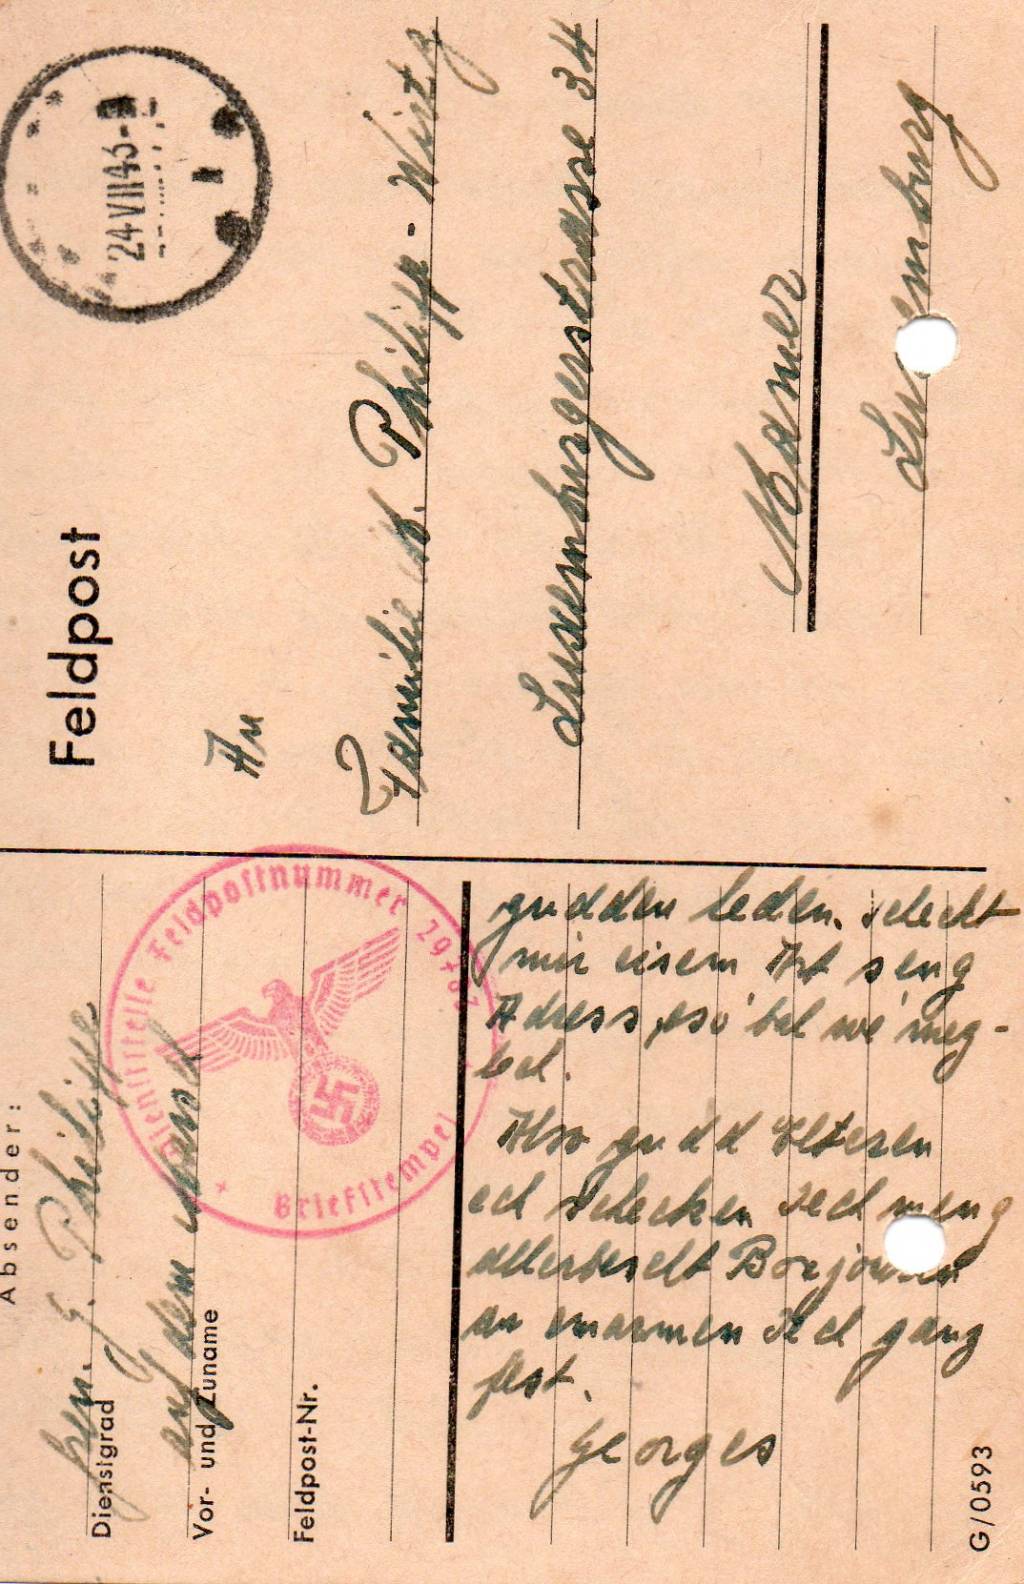 Feldpost
24 VII 43
An
Familie M. Philipp-Wirtz
Luxemburgerstrasse 34
Mamer
Luxemburg
Absender:
Gren. G. Philipp
Dienstgrad
auf dem Marsch
Vor- und Zuname
Feldpost-Nr.
Dienststelle Feldpostnummer
Briefstempel
gudden leden. Scheckt
mir eisem Art seng
Adress, eso' bal we' meg-
lech.
Also gudd Elteren
ech schecken Iech meng
allerbescht Bonjouren
an emarmen Iech ganz
fest.
Georges
G/0593